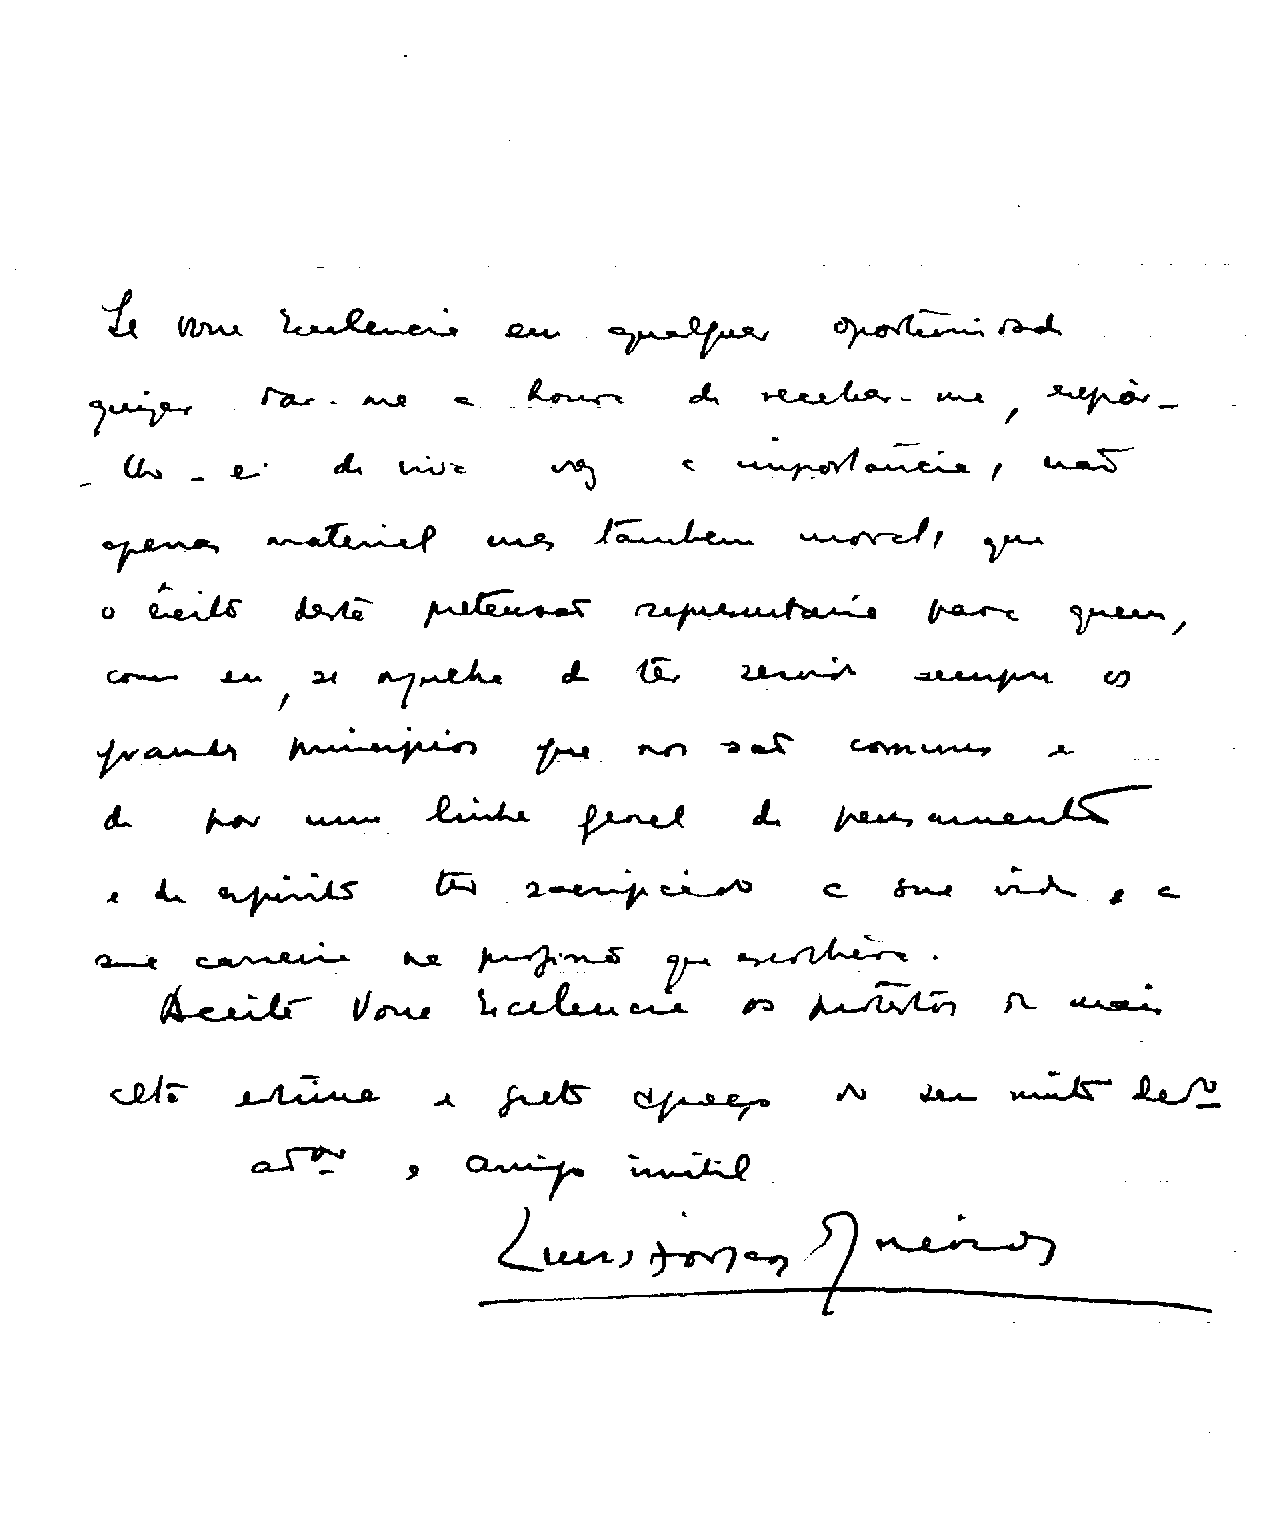 Se Vossa Excelencia em qualquer oportunidade
quizer dar-me a honra de receber-me, expôr-
-lho-ei de viva voz a importância, não
apenas material mas tambem moral, que
o êxito desta pretensão representaria para quem,
como eu, se orgulha de ter servido sempre os
grandes principios que nos são comuns e
de por uma linha geral de pensamento
e de espirito ter sacrificado a sua vida e a
sua carreira na profissão que escolhêra.
Aceite Vossa Excelencia os protestos da mais
alta estima e grato apreço do seu muito devº
adºʳ e amigo inutil
Luis Forjaz Trigueiros